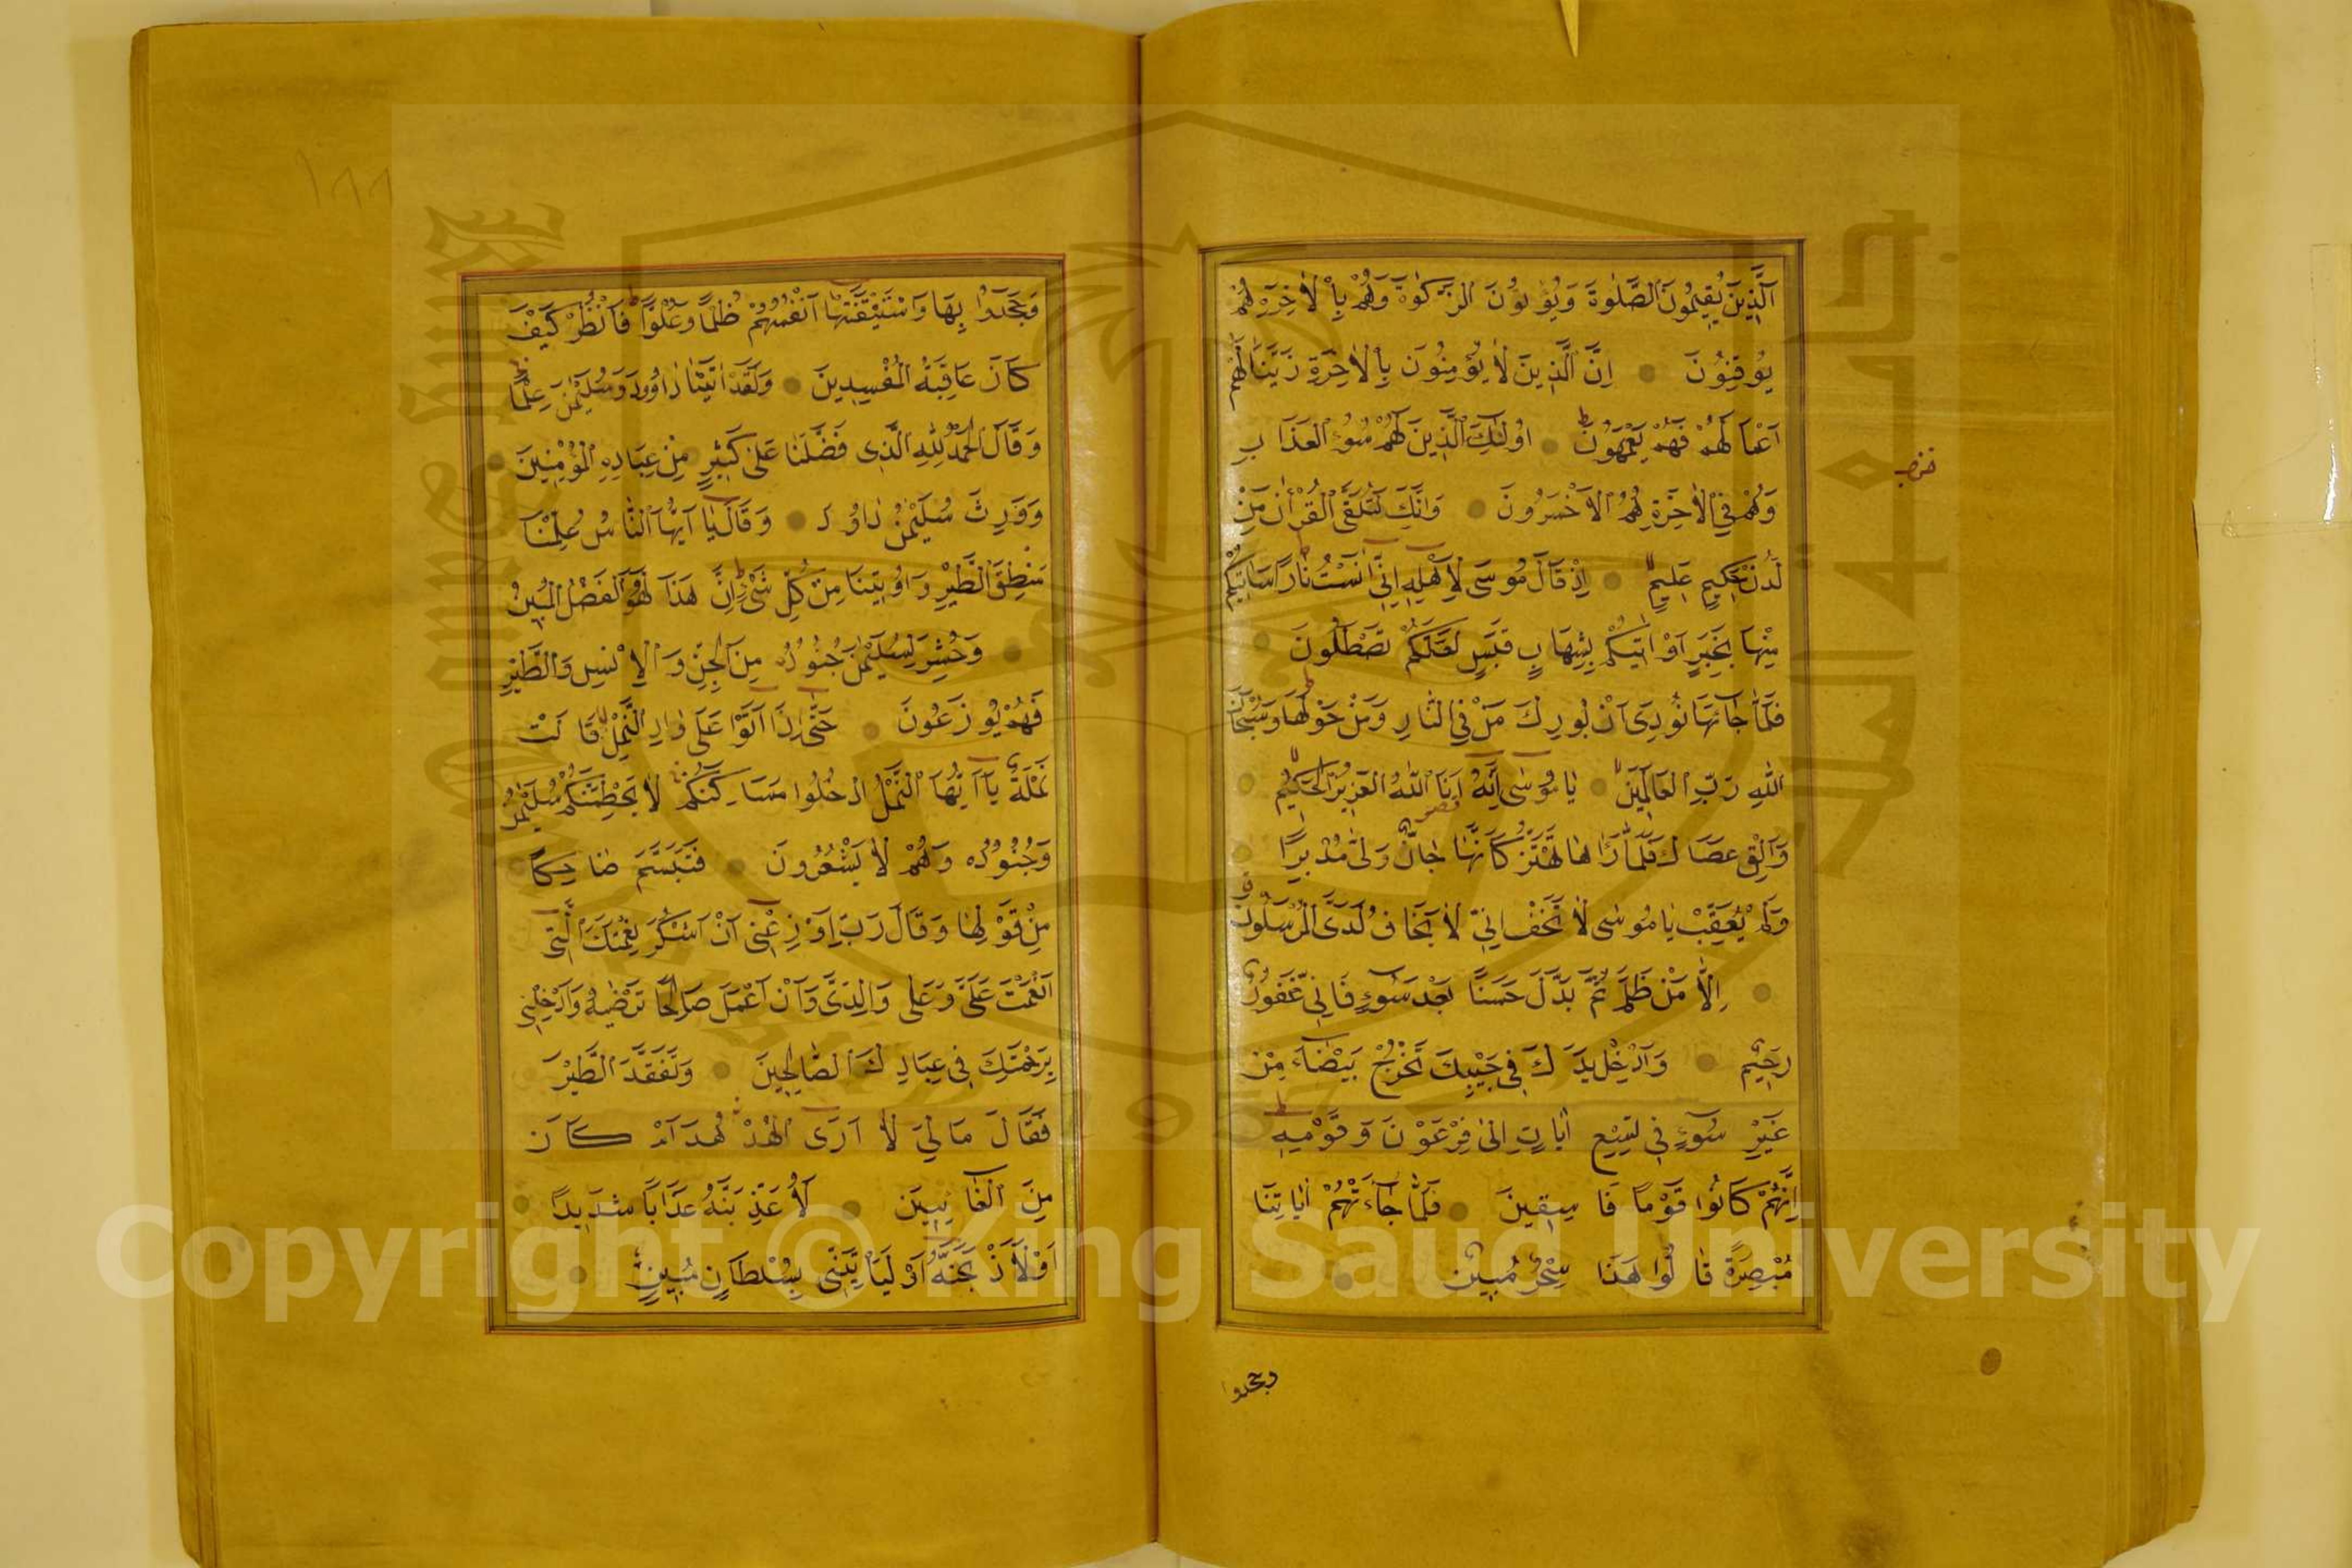 اَلَّذِينَ يُقِيمُونَ الصَّلٰوةَ وَيُؤْتُونَ الزَّكٰوةَ وَهُمْ بِالْاٰخِرَةِ هُمْ
يُوقِنُونَ اِنَّ الَّذِينَ لَا يُؤْمِنُونَ بِالْاٰخِرَةِ زَيَّنَّا لَهُمْ
اَعْمَالَهُمْ فَهُمْ يَعْمَهُونَ اُولٰئِكَ الَّذِينَ لَهُمْ سُوءُ الْعَذَابِ
وَهُمْ فِي الْاٰخِرَةِ هُمُ الْاَخْسَرُونَ وَاِنَّكَ لَتُلَقَّى الْقُرْاٰنَ مِنْ
لَدُنْ حَكِيمٍ عَلِيمٍ اِذْ قَالَ مُوسَى لِاَهْلِهِ اِنِّي اٰنَسْتُ نَارًا سَاٰتِيكُمْ
مِنْهَا بِخَبَرٍ اَوْ اٰتِيكُمْ بِشِهَابٍ قَبَسٍ لَعَلَّكُمْ تَصْطَلُونَ
فَلَمَّا جَآءَهَا نُودِىَ اَنْ بُورِكَ مَنْ فِي النَّارِ وَمَنْ حَوْلَهَا وَسُبْحَانَ
اللّٰهِ رَبِّ الْعَالَمِينَ يَا مُوسٰى اِنَّهُ اَنَا اللّٰهُ الْعَزِيزُ الْحَكِيمُ
وَاَلْقِ عَصَاكَ فَلَمَّا رَاٰهَا تَهْتَزُّ كَاَنَّهَا جَانٌّ وَلّٰى مُدْبِرًا
وَلَمْ يُعَقِّبْ يَا مُوسٰى لَا تَخَفْ اِنِّي لَا يَخَافُ لَدَىَّ الْمُرْسَلُونَ
اِلَّا مَنْ ظَلَمَ ثُمَّ بَدَّلَ حَسَنًا بَعْدَ سُوءٍ فَاِنِّي غَفُورٌ
رَحِيمٌ وَاَدْخِلْ يَدَكَ فِي جَيْبِكَ تَخْرُجْ بَيْضَآءَ مِنْ
غَيْرِ سُوءٍ فِي تِسْعِ اٰيَاتٍ اِلٰى فِرْعَوْنَ وَقَوْمِهِ
اِنَّهُمْ كَانُوا قَوْمًا فَاسِقِينَ فَلَمَّا جَآءَتْهُمْ اٰيَاتُنَا
مُبْصِرَةً قَالُوا هَذَا سِحْرٌ مُبِينٌ
وجحدوا
١٨٨
وَجَحَدُوا بِهَا وَاسْتَيْقَنَتْهَا اَنْفُسُهُمْ ظُلْمًا وَعُلُوًّا فَانْظُرْ كَيْفَ
كَانَ عَاقِبَةُ الْمُفْسِدِينَ وَلَقَدْ اٰتَيْنَا دَاوُودَ وَسُلَيْمٰنَ عِلْمًا
وَقَالَا الْحَمْدُ لِلّٰهِ الَّذِى فَضَّلَنَا عَلٰى كَثِيرٍ مِنْ عِبَادِهِ الْمُؤْمِنِينَ
وَوَرِثَ سُلَيْمٰنُ دَاوُدَ وَقَالَ يَا اَيُّهَا النَّاسُ عُلِّمْنَا
مَنْطِقَ الطَّيْرِ وَاُوتِينَا مِنْ كُلِّ شَىْءٍ اِنَّ هَذَا لَهُوَ الْفَضْلُ الْمُبِينُ
وَحُشِرَ لِسُلَيْمٰنَ جُنُودُهُ مِنَ الْجِنِّ وَالْاِنْسِ وَالطَّيْرِ
فَهُمْ يُوزَعُونَ حَتّٰى اِذَا اَتَوْا عَلَى وَادِ النَّمْلِ قَالَتْ
نَمْلَةٌ يَا اَيُّهَا النَّمْلُ ادْخُلُوا مَسَاكِنَكُمْ لَا يَحْطِمَنَّكُمْ سُلَيْمٰنُ
وَجُنُودُهُ وَهُمْ لَا يَشْعُرُونَ فَتَبَسَّمَ ضَاحِكًا
مِنْ قَوْلِهَا وَقَالَ رَبِّ اَوْزِعْنِى اَنْ اَشْكُرَ نِعْمَتَكَ الَّتِى
اَنْعَمْتَ عَلَىَّ وَعَلٰى وَالِدَىَّ وَاَنْ اَعْمَلَ صَالِحًا تَرْضٰيهُ وَاَدْخِلْنِى
بِرَحْمَتِكَ فِى عِبَادِكَ الصَّالِحِينَ وَتَفَقَّدَ الطَّيْرَ
فَقَالَ مَالِيَ لَا اَرَى الْهُدْهُدَ اَمْ كَانَ
مِنَ الْغَائِبِينَ لَاُعَذِّبَنَّهُ عَذَابًا شَدِيدًا
اَوْ لَاَذْبَحَنَّهُ اَوْ لَيَاْتِيَنِّى بِسُلْطَانٍ مُبِينٍ
Copyright © King Saud University